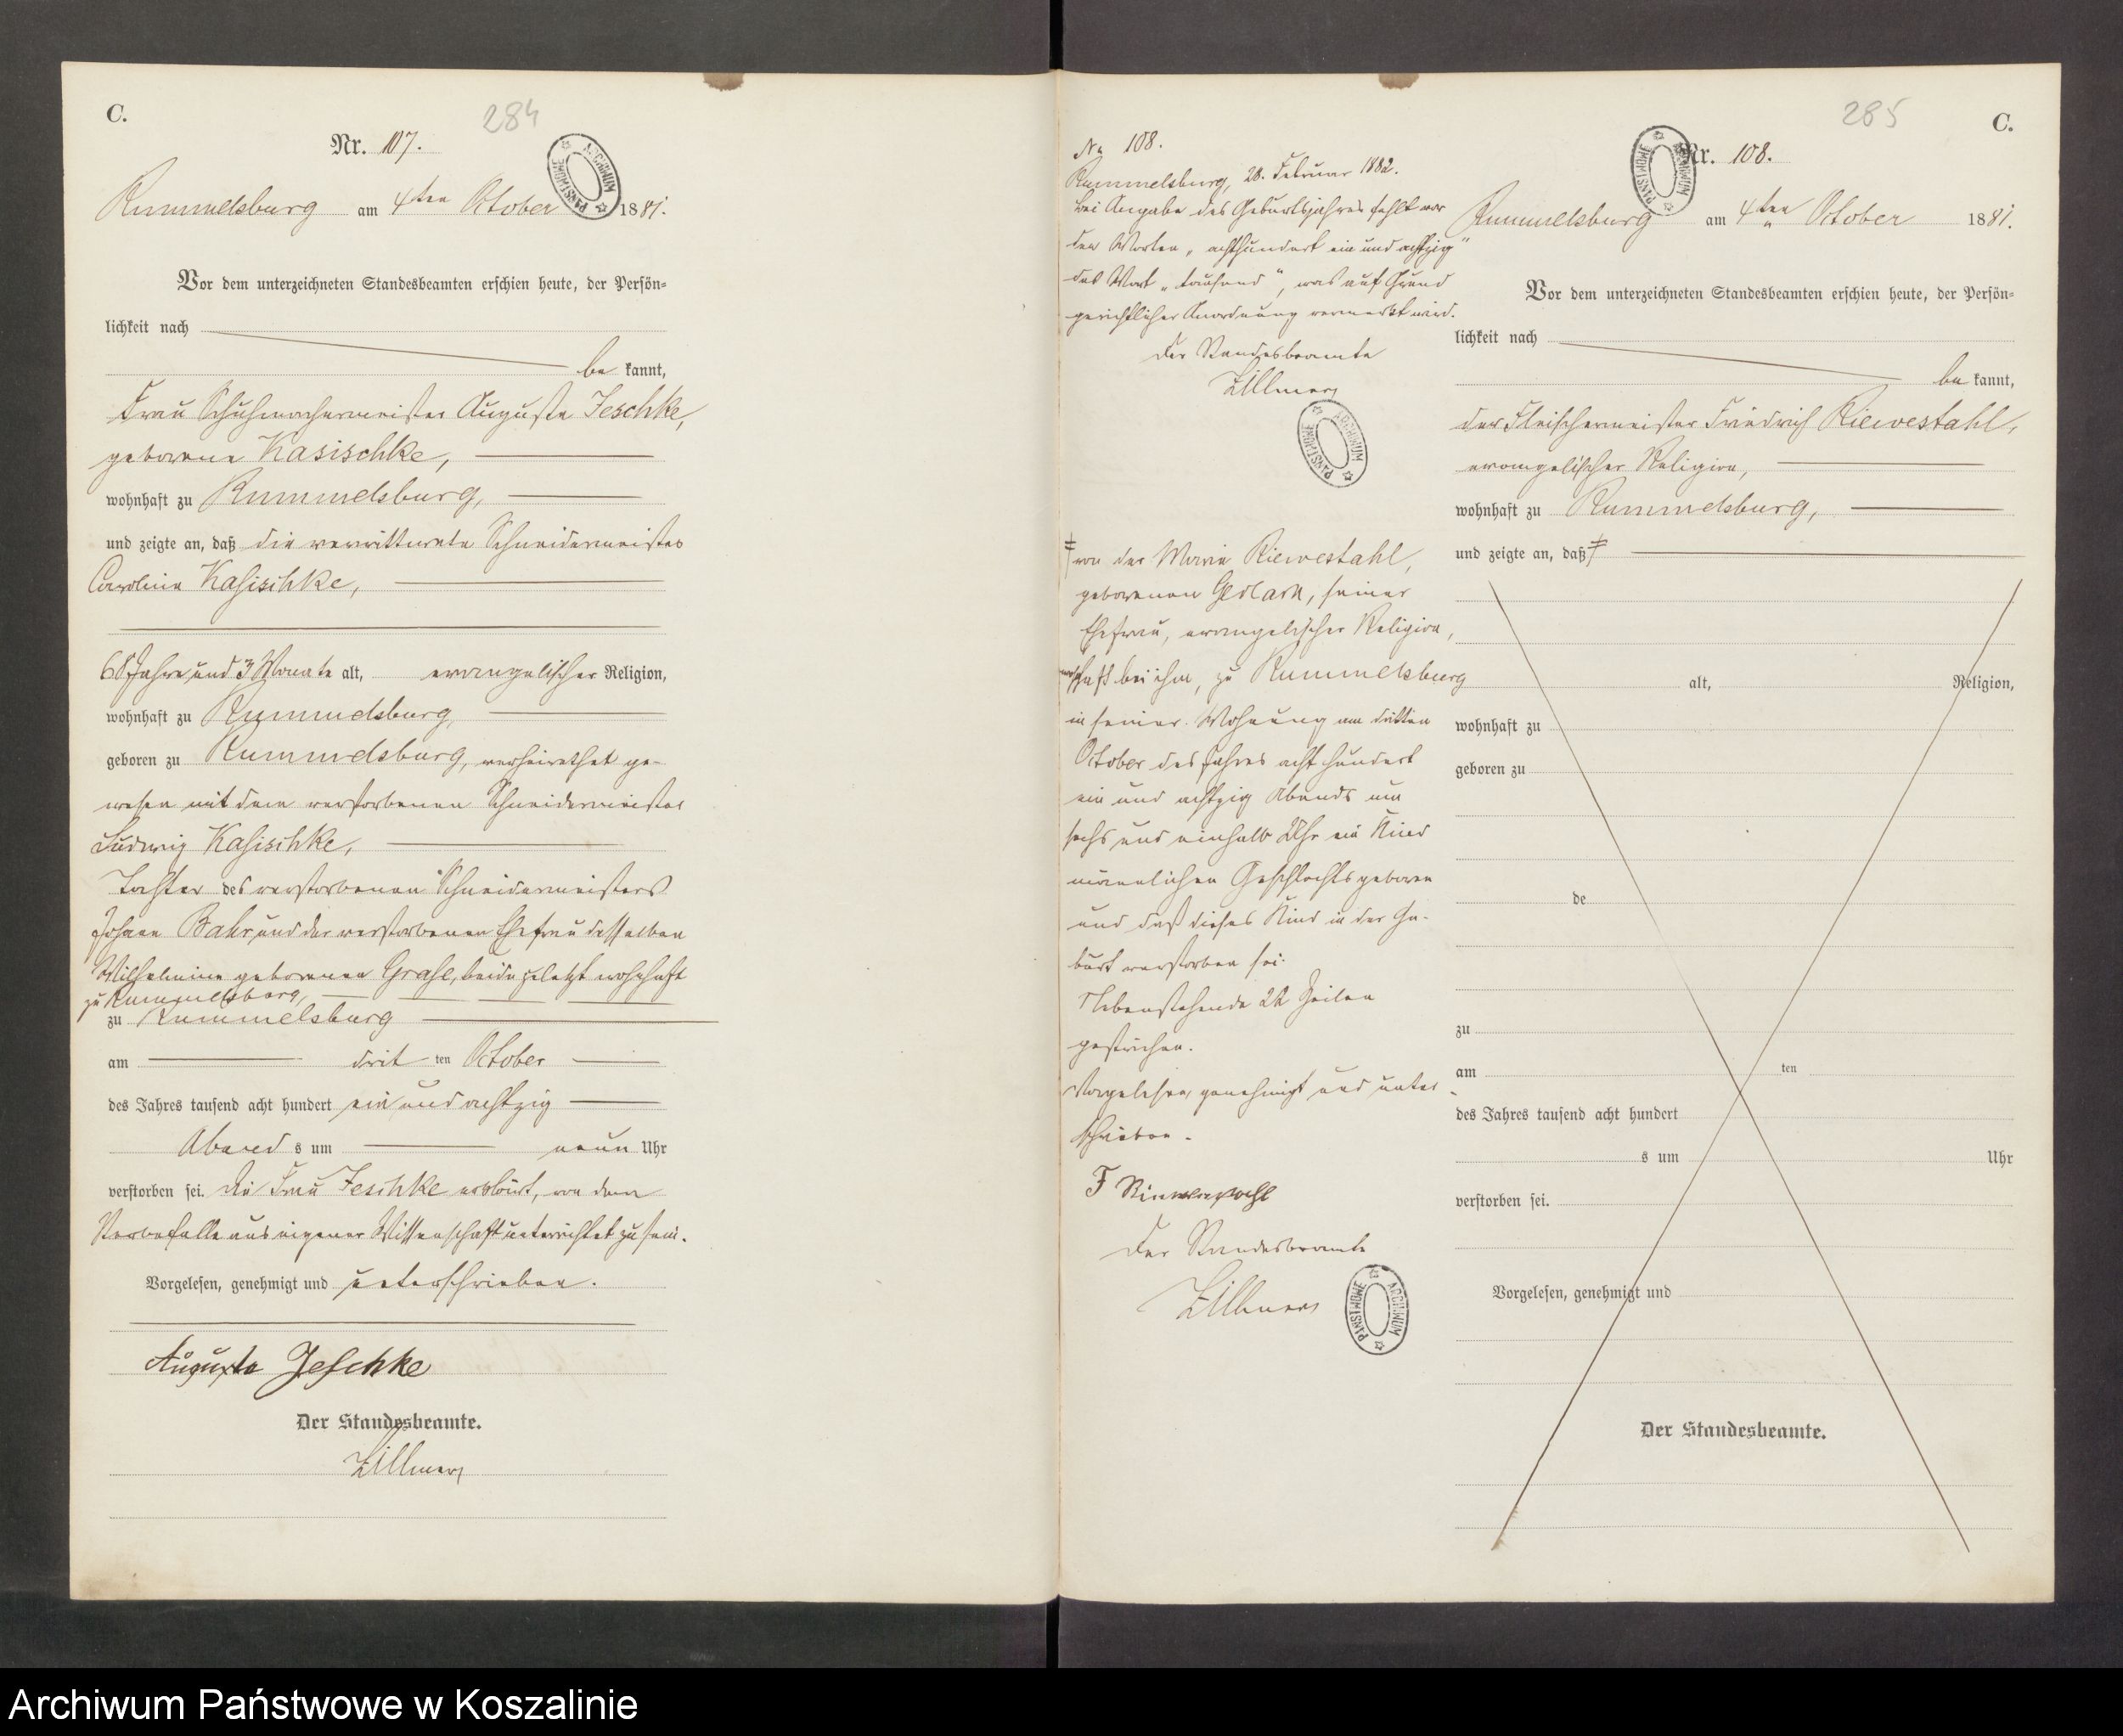 C.
284
Nr. 107.
ARCHIWUM PAŃSTWOWE
Rummelsburg am 4ten October 1881.
Vor dem unterzeichneten Standesbeamten erschien heute, der Persön-
lichkeit nach
be kannt,
Frau Schuhmachermeister Auguste Jeschke,
geborene Kasischke,
wohnhaft zu Rummelsburg,
und zeigte an, daß die verwittwete Schneidermeister
Caroline Kasischke,
68 Jahre und 3 Monate alt, evangelischer Religion,
wohnhaft zu Rummelsburg,
geboren zu Rummelsburg, verheirathet ge-
wesen mit dem verstorbenen Schneidermeister
Ludwig Kasischke,
Tochter des verstorbenen Schneidermeisters
Johann Bahr und der verstorbenen Ehefrau desselben
Wilhelmine geborenen Grahl, beide zuletzt wohnhaft
zu Rummelsburg,
zu Rummelsburg
am drit ten October
des Jahres tausend acht hundert ein und achtzig
Abend s um neun Uhr
verstorben sei. Die Frau Jeschke erklärt, von dem
Sterbefalle aus eigener Wissenschaft unterrichtet zu sein.
Vorgelesen, genehmigt und unterschrieben.
Auguste Jeschke
Der Standesbeamte.
Zillmer
No 108.
Rummelsburg, 28. Februar 1882.
Bei Angabe des Geburtsjahres fehlt vor
den Worten „achthundert ein und achtzig"
das Wort „tausend", was auf Grund
gerichtlicher Anordnung vermerkt wird.
Der Standesbeamte
Zillmer
ARCHIWUM PAŃSTWOWE
von der Marie Riewestahl,
geborenen Gerlach, seiner
Ehefrau, evangelischer Religion,
wohnhaft bei ihm, zu Rummelsburg
in seiner Wohnung am dritten
October des Jahres acht hundert
ein und achtzig Abends um
sechs und einhalb Uhr ein Kind
männlichen Geschlechts geboren
und daß dieses Kind in der Ge-
burt verstorben sei.
Nebenstehende 22 Zeilen
gestrichen.
Vorgelesen, genehmigt und unter-
schrieben.
F Riewestahl
Der Standesbeamte
Zillmer
ARCHIWUM PAŃSTWOWE
285
C.
Nr. 108.
ARCHIWUM PAŃSTWOWE
Rummelsburg am 4ten October 1881.
Vor dem unterzeichneten Standesbeamten erschien heute, der Persön-
lichkeit nach
be kannt,
der Fleischermeister Friedrich Riewestahl,
evangelischer Religion,
wohnhaft zu Rummelsburg,
und zeigte an, daß
alt, Religion,
wohnhaft zu
geboren zu
de
zu
am ten
des Jahres tausend acht hundert
s um Uhr
verstorben sei.
Vorgelesen, genehmigt und
Der Standesbeamte.
Archiwum Państwowe w Koszalinie